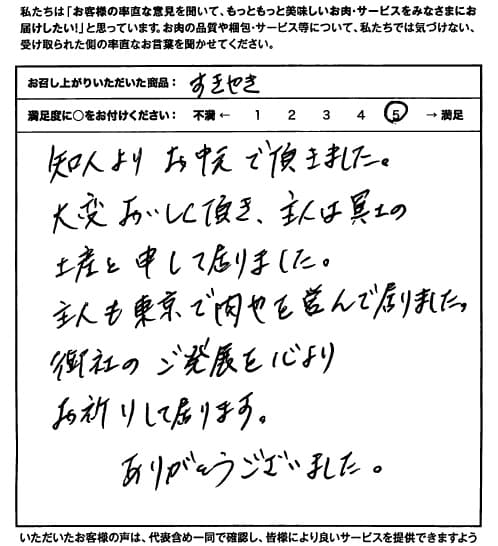 私たちは「お客様の率直な意見を聞いて、もっともっと美味しいお肉・サービスをみなさまにお
届けしたい!」と思っています。お肉の品質や梱包・サービス等について、私たちでは気づけない、
受け取られた側の率直なお言葉を聞かせてください。
お召し上がりいただいた商品: すきやき
満足度に○をお付けください: 不満 ← 1 2 3 4 5 → 満足
知人より お中元で頂きました。
大変おいしく頂き、主人は冥土の
土産と申して居りました。
主人も東京で肉やを営んで居りました。
御社のご発展を心より
お祈りして居ります。
ありがとうございました。
いただいたお客様の声は、代表含め一同で確認し、皆様により良いサービスを提供できますよう